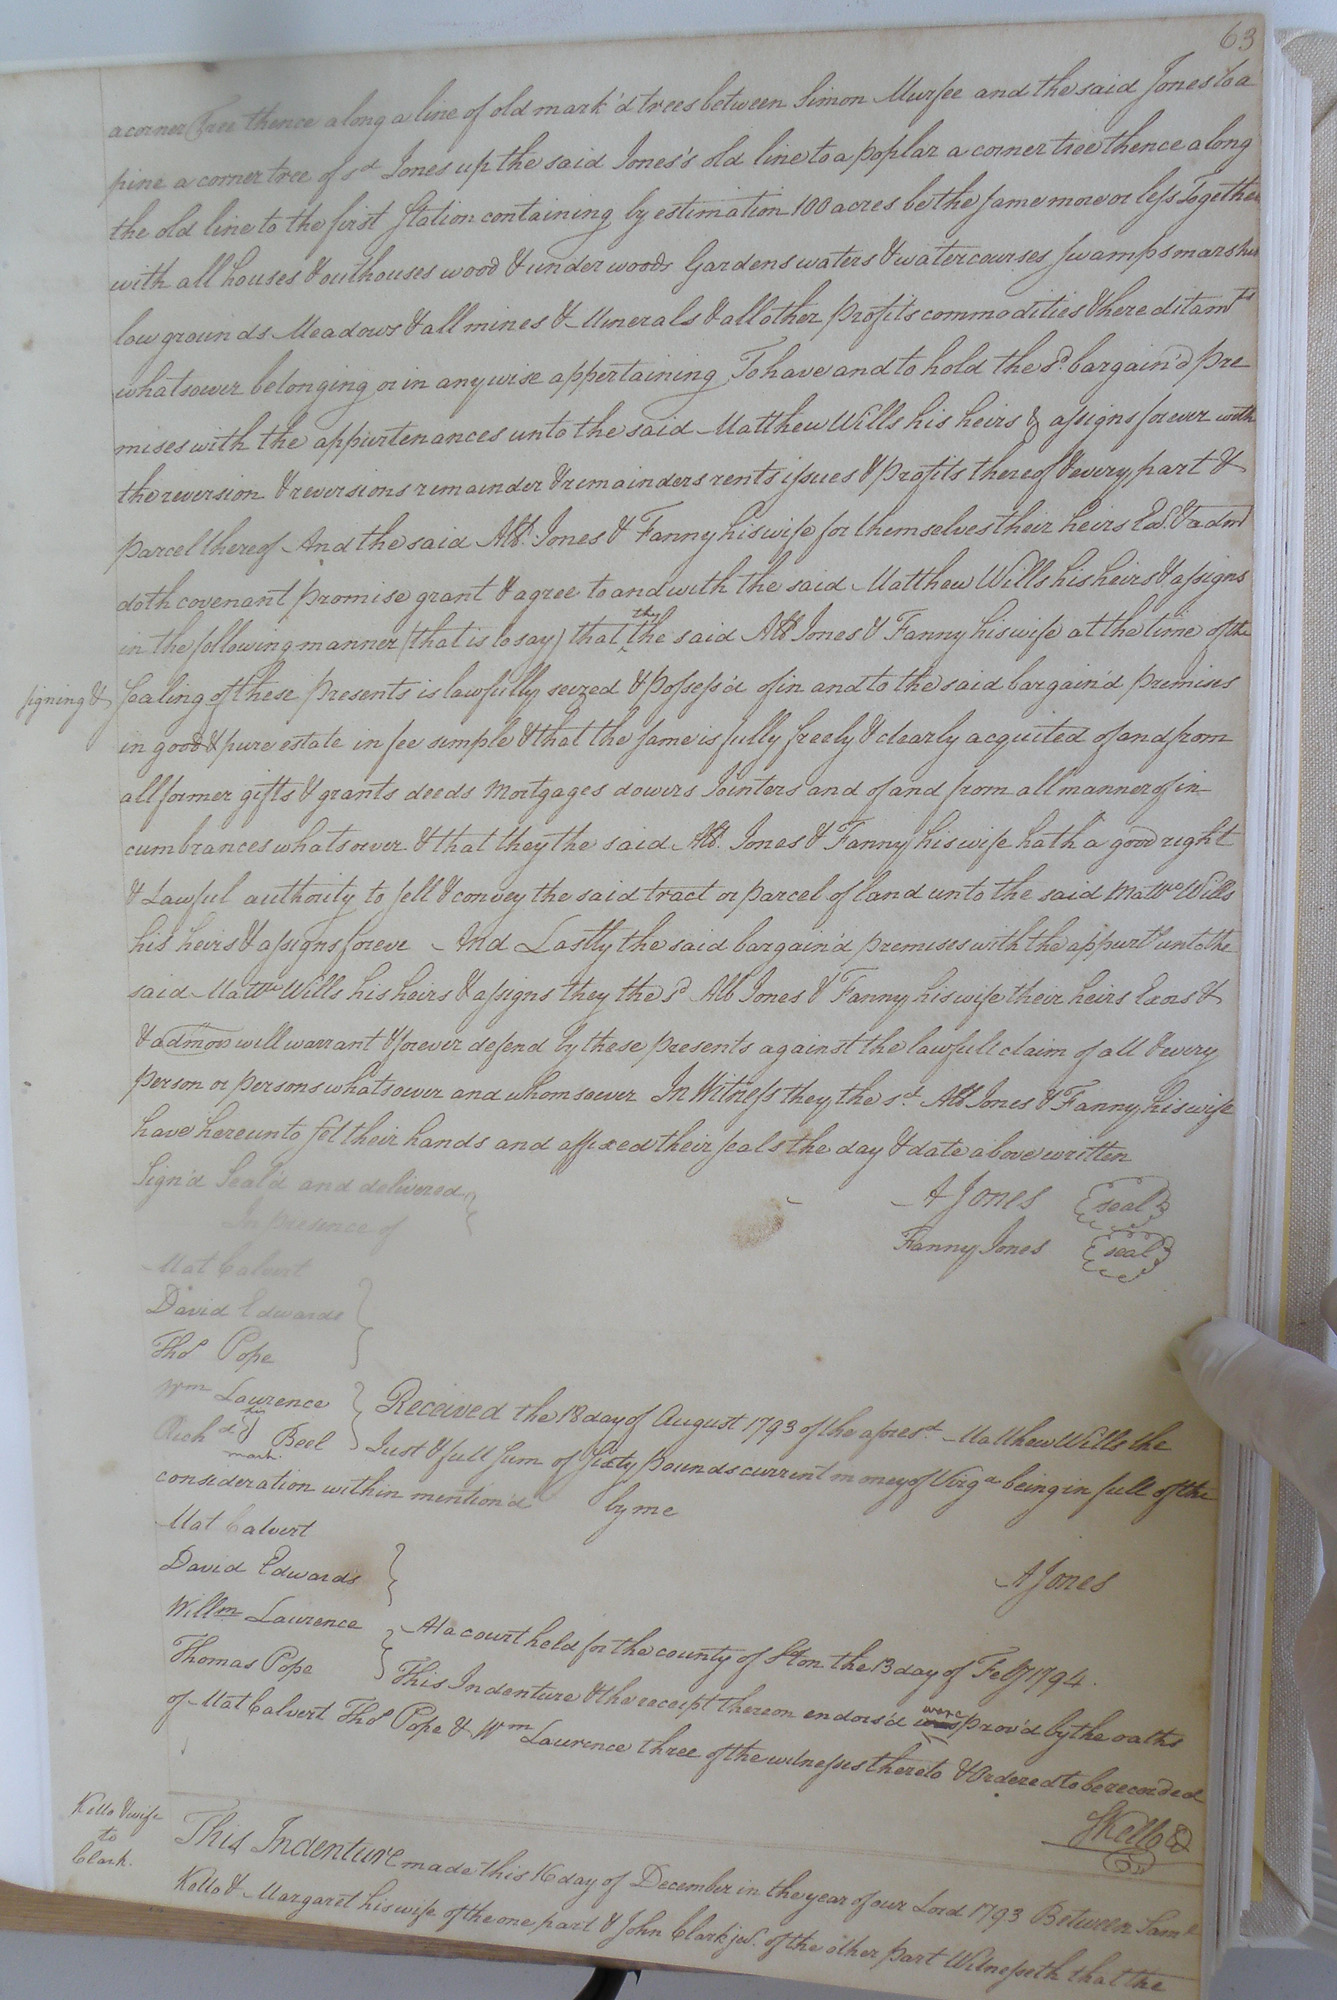 63
a corner Tree thence along a line of old mark'd trees between Simon Murfee and the said Jones to a
pine a corner tree of sd Jones up the said Jones's old line to a poplar a corner tree thence along
the old line to the first Station containing by estimation 100 acres be the same more or less Together
with all houses & outhouses wood & under woods Gardens waters & watercourses swamps marshes
low grounds Meadows & all mines & Minerals & all other profits commodities & hereditamts
whatsoever belonging or in any wise appertaining To have and to hold the sd bargain'd pre
mises with the appurtenances unto the said Matthew Wills his heirs & assigns forever with
the reversion & reversions remainder & remainders rents issues & profits thereof & every part &
parcel thereof And the said Alb. Jones & Fanny his wife for themselves their heirs Exd. & admd
doth covenant promise grant & agree to and with the said Matthew Wills his heirs & assigns
in the following manner (that is to say) that they the said Alb. Jones & Fanny his wife at the time of the
signing & Sealing of these presents is lawfully seized & possess'd of in and to the said bargain'd premises
in good & pure estate in fee simple & that the same is fully freely & clearly acquited of and from
all former gifts & grants deeds mortgages dowers Jointers and of and from all manner of in
cumbrances whatsoever & that they the said Alb. Jones & Fanny his wife hath a good right
& Lawful authority to sell & convey the said tract or parcel of land unto the said Mattw Wills
his heirs & assigns foreve And Lastly the said bargain'd premises with the appurts unto the
said Mattw Wills his heirs & assigns they the sd Alb Jones & Fanny his wife their heirs Exors &
& admors will warrant & forever defend by these presents against the lawfull claim of all & every
person or persons whatsoever and whomsoever In Witness they the sd. Alb Jones & Fanny his wife
have hereunto set their hands and affixed their seals the day & date above written
Sign'd Seal'd and delivered
In presence of
A Jones seal
Fanny Jones seal
Mat Calvert
David Edwards
Thos Pope
Wm Laurence
Richd his mark Beel
Received the 18 day of August 1793 of the aforesd. Matthew Wills the
Just & full sum of sixty pounds current money of Virga being in full of the
consideration within mention'd by me
Mat Calvert
David Edwards
A Jones
Willm Laurence
Thomas Pope
At a court held for the county of Ston the 13 day of Feby 1794.
This Indenture & the receipt thereon endors'd were prov'd by the oaths
of Mat Calvert Thos Pope & Wm Laurence three of the witnesses thereto & Ordered to be recorded
S Kello
Kello & wife
to
Clark.
This Indenture made this 16 day of December in the year of our Lord 1793 Between Saml
Kello & Margaret his wife of the one part & John Clark jur. of the other part Witnesseth that the